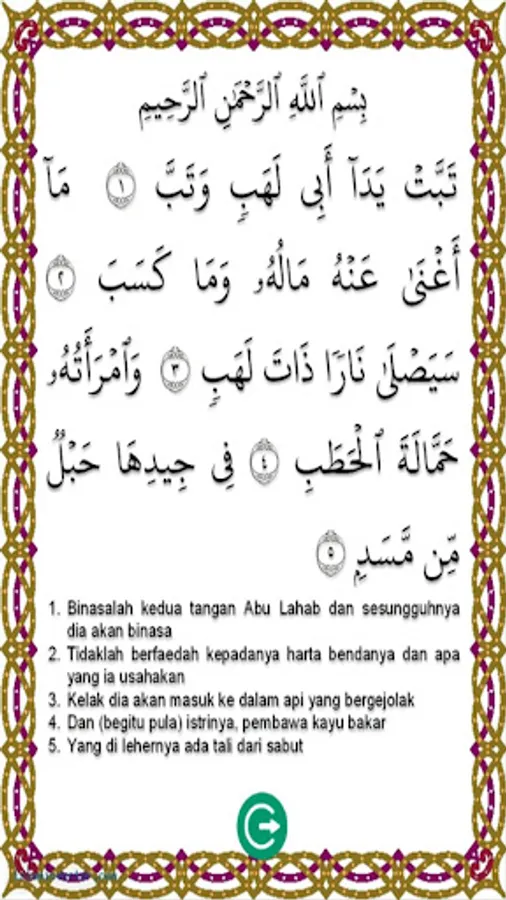 بِسْمِ ٱللَّهِ ٱلرَّحْمَٰنِ ٱلرَّحِيمِ
تَبَّتْ يَدَآ أَبِى لَهَبٍ وَتَبَّ ١ مَآ
أَغْنَىٰ عَنْهُ مَالُهُۥ وَمَا كَسَبَ ٢
سَيَصْلَىٰ نَارًا ذَاتَ لَهَبٍ ٣ وَٱمْرَأَتُهُۥ
حَمَّالَةَ ٱلْحَطَبِ ٤ فِى جِيدِهَا حَبْلٌ
مِّن مَّسَدٍ ٥
1. Binasalah kedua tangan Abu Lahab dan sesungguhnya
dia akan binasa
2. Tidaklah berfaedah kepadanya harta bendanya dan apa
yang ia usahakan
3. Kelak dia akan masuk ke dalam api yang bergejolak
4. Dan (begitu pula) istrinya, pembawa kayu bakar
5. Yang di lehernya ada tali dari sabut